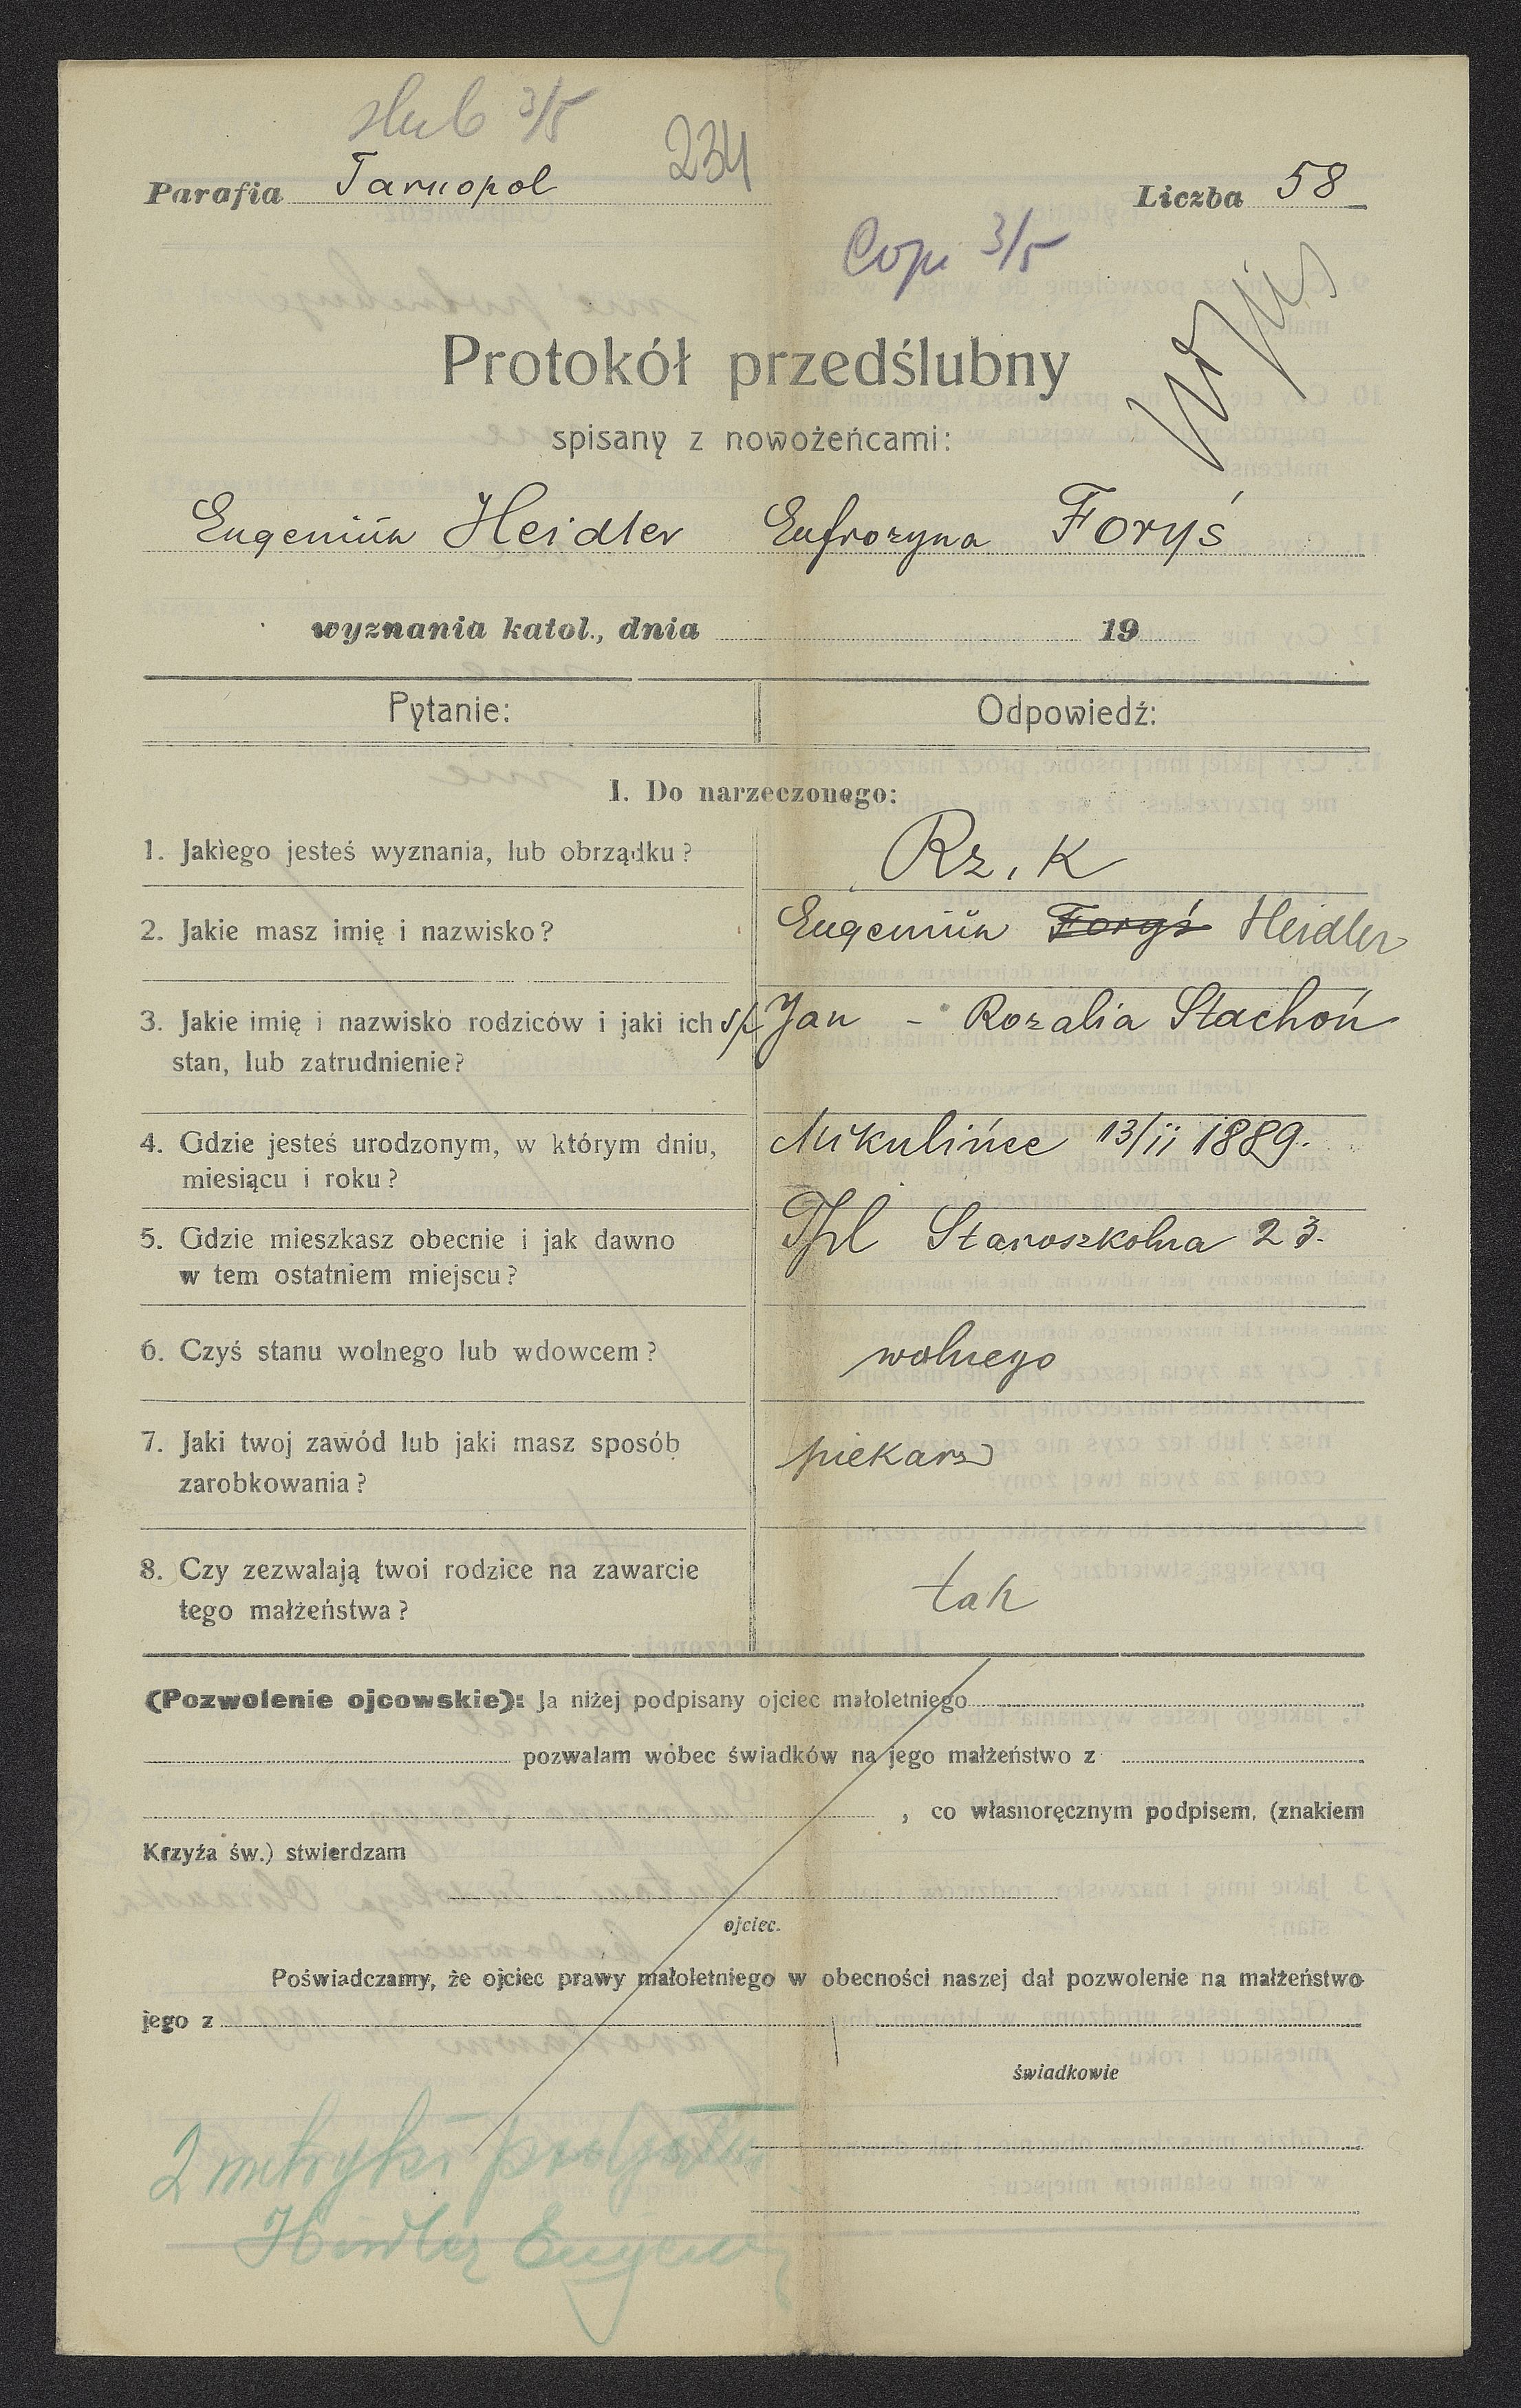 ślub 3/5
234
Parafia Tarnopol
Liczba 58
Copi 3/5
Protokół przedślubny
spisany z nowożeńcami:
Eugeniusz Heidler Eufrozyna Foryś
wyznania katol., dnia 19
Pytanie: Odpowiedź:
I. Do narzeczonego:
1. Jakiego jesteś wyznania, lub obrządku? Rz. K
2. Jakie masz imię i nazwisko? Eugeniusz Foryś Heidler
3. Jakie imię i nazwisko rodziców i jaki ich Jan - Rozalia Stachoń
stan, lub zatrudnienie?
4. Gdzie jesteś urodzonym, w którym dniu, Mikulińce 13/11 1889.
miesiącu i roku?
5. Gdzie mieszkasz obecnie i jak dawno Tpl Staroszkolna 23.
w tem ostatniem miejscu?
6. Czyś stanu wolnego lub wdowcem? wolnego
7. Jaki twoj zawód lub jaki masz sposób piekarz
zarobkowania?
8. Czy zezwalają twoi rodzice na zawarcie tak
tego małżeństwa?
(Pozwolenie ojcowskie): Ja niżej podpisany ojciec małoletniego
pozwalam wobec świadków na jego małżeństwo z
, co własnoręcznym podpisem, (znakiem
Krzyża św.) stwierdzam
ojciec.
Poświadczamy, że ojciec prawy małoletniego w obecności naszej dał pozwolenie na małżeństwo
jego z
świadkowie
2 metryki
Heidler